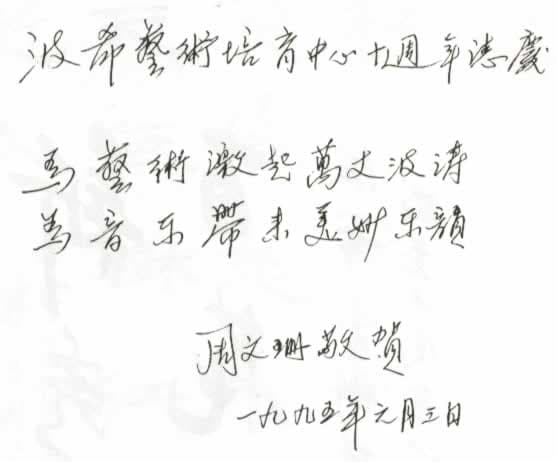 波希藝術培育中心十週年誌慶
為藝術激起萬丈波涛
為音乐帶来美妙乐韻
周文珊敬賀
一九九五年元月三日